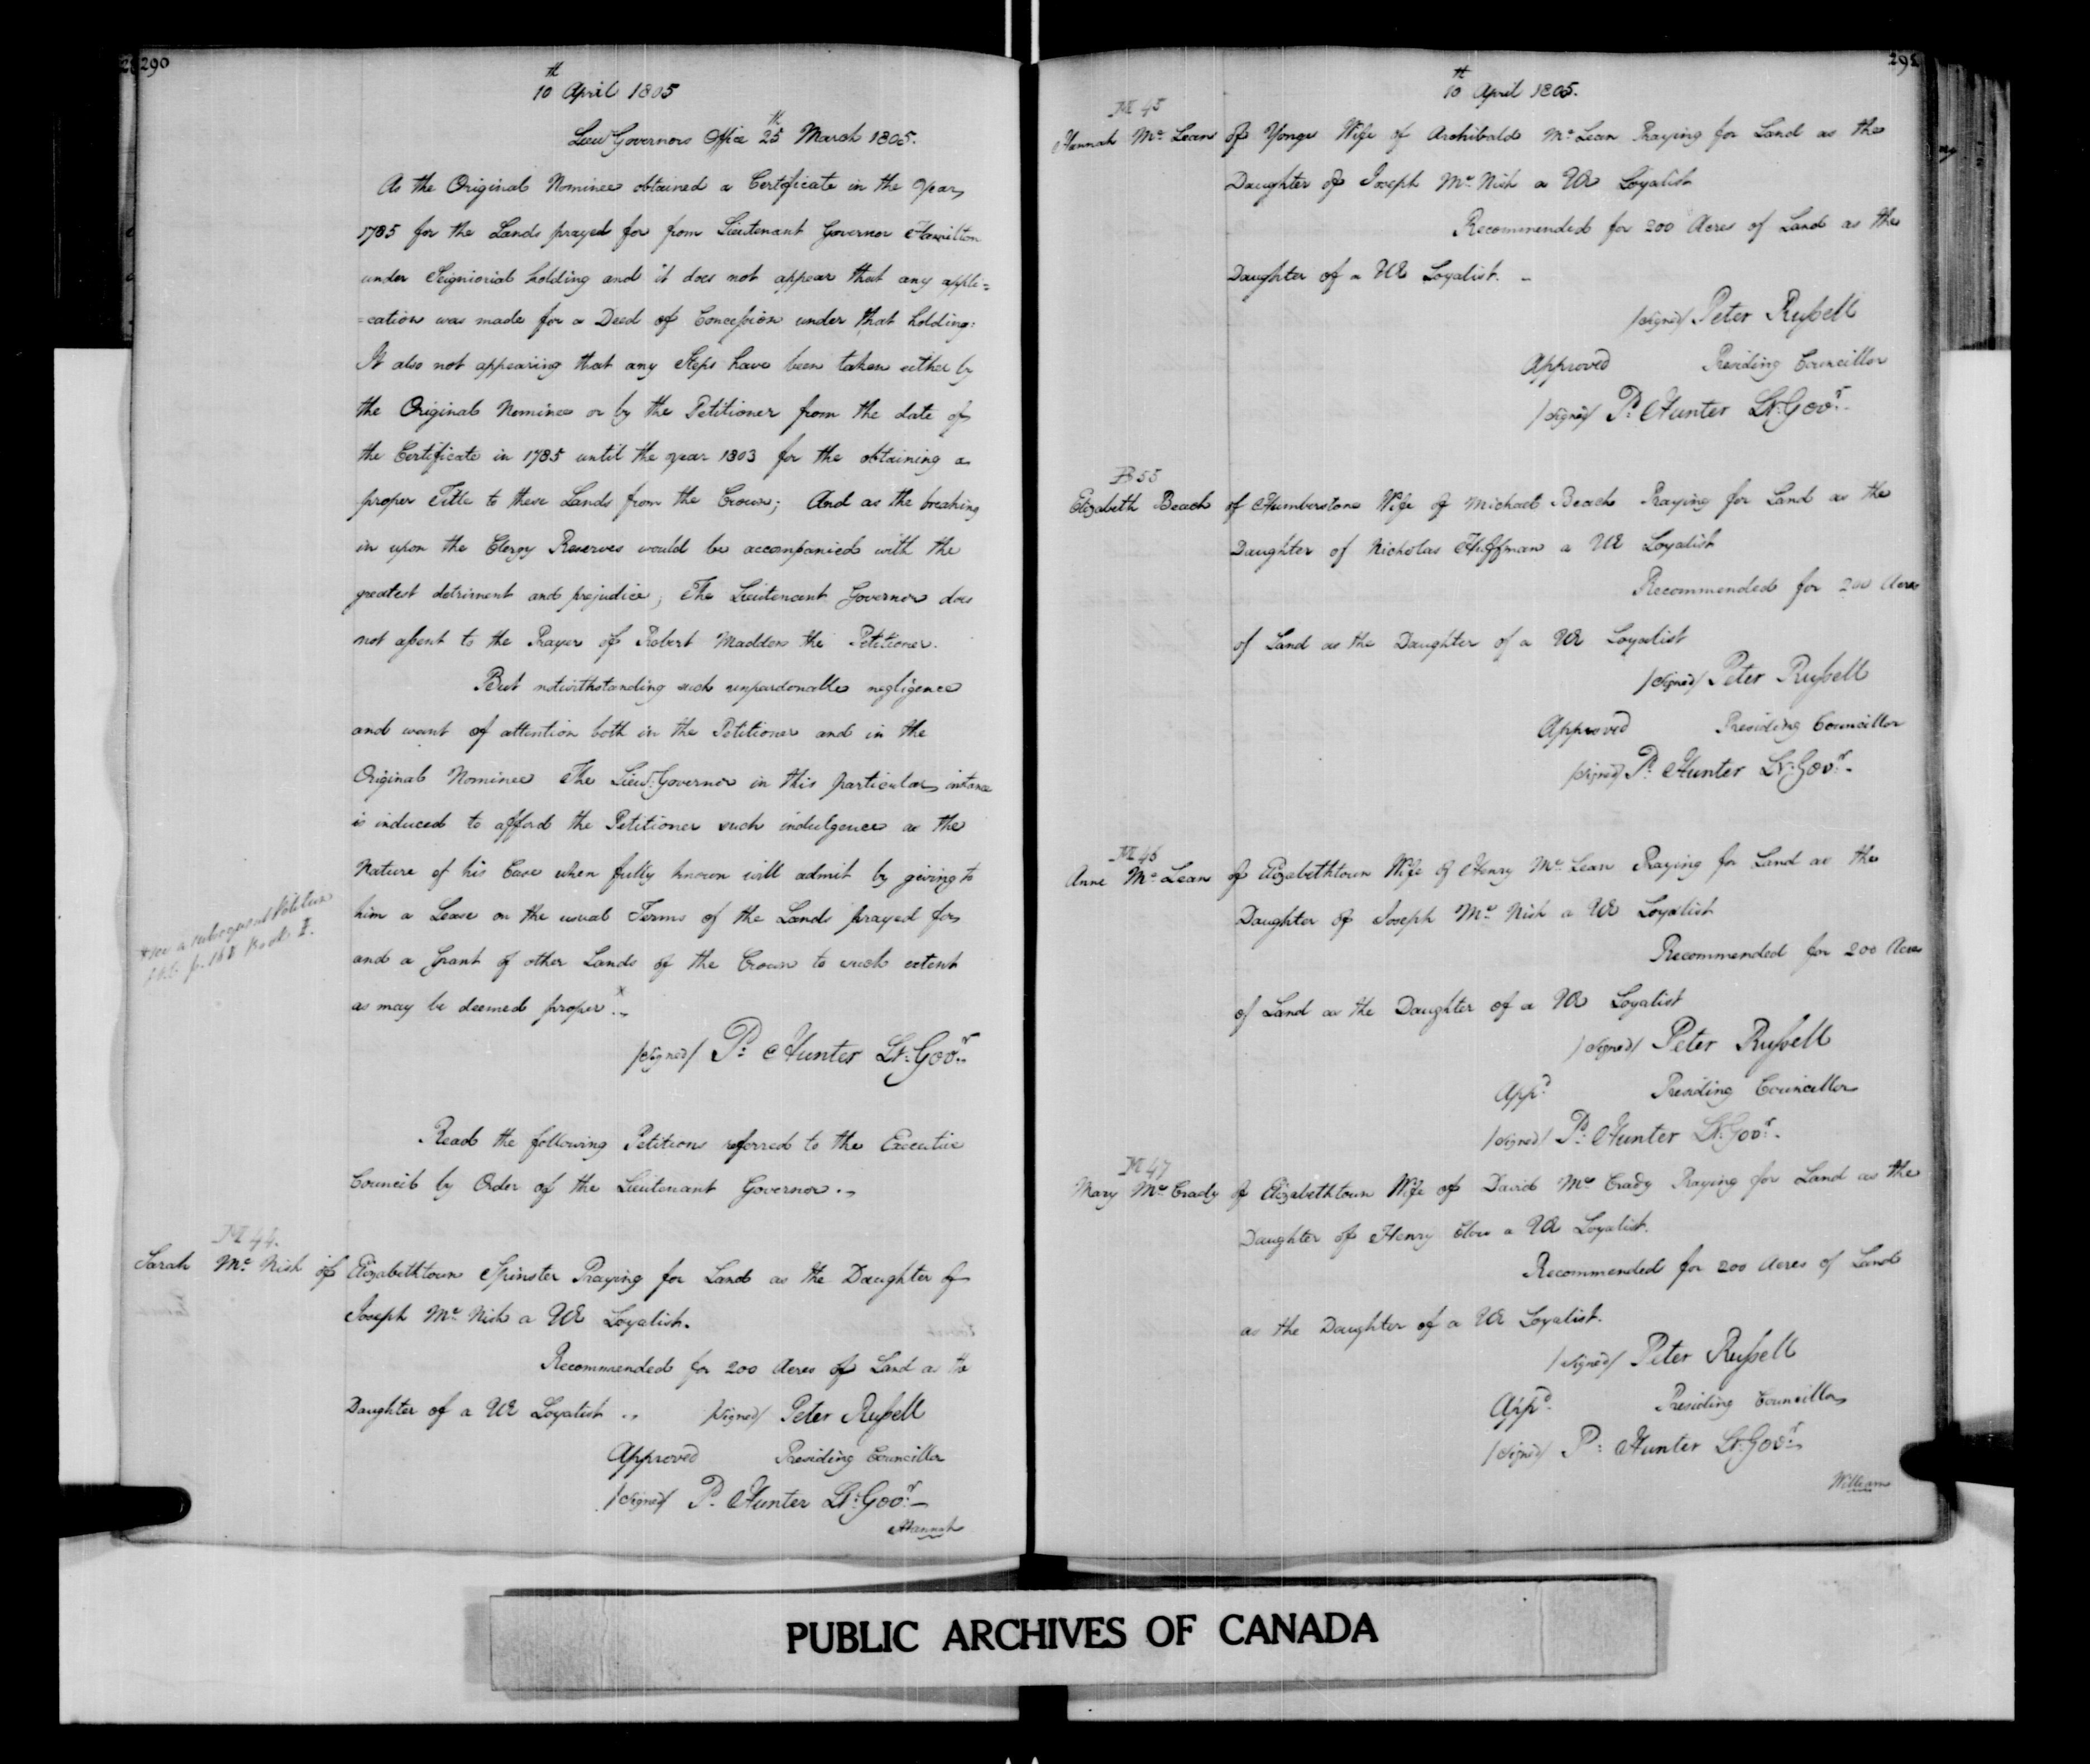 290
10th April 1805
Lieut Governors Office 25th March 1805.
As the Original Nominee obtained a Certificate in the year
1785 for the Lands prayed for from Lieutenant Governor Hamilton
under Seigniorial holding and it does not appear that any appli=
=cation was made for a Deed of Concession under that holding:
It also not appearing that any Steps have been taken either by
the Original Nominee or by the Petitioner from the date of
the Certificate in 1785 until the year 1803 for the obtaining a
proper Title to these Lands from the Crown; And as the breaking
in upon the Clergy Reserves would be accompanied with the
greatest detriment and prejudice; The Lieutenant Governor does
not assent to the Prayer of Robert Madden the Petitioner.
But notwithstanding such unpardonable negligence
and want of attention both in the Petitioner and in the
Original Nominee The Lieut Governor in this particular instance
is induced to afford the Petitioner such indulgence as the
Nature of his Case when fully known will admit by giving to
him a Lease on the usual Terms of the Lands prayed for
and a Grant of other Lands of the Crown to such extent
as may be deemed proper. x
x see a subsequent Petition
p. 168 Book I.
/signed/ P: Hunter Lt: Govr.
Read the following Petitions referred to the Executive
Council by Order of the Lieutenant Governor.
M 44.
Sarah Mc Nish of Elizabethtown Spinster Praying for Land as the Daughter of
Joseph Mc Nish a UE Loyalist.
Recommended for 200 Acres of Land as the
Daughter of a UE Loyalist. /signed/ Peter Russell
Approved Presiding Councillor
/signed/ P. Hunter Lt: Govr.
Hannah
291
10th April 1805.
M 45
Hannah Mc Lean of Yonge Wife of Archibald Mc Lean Praying for Land as the
Daughter of Joseph Mc Nish a UE Loyalist
Recommended for 200 Acres of Land as the
Daughter of a UE Loyalist.
/signed/ Peter Russell
Approved Presiding Councillor
/signed/ P: Hunter Lt: Govr.
B 55
Elizabeth Beach of Humberstone Wife of Michael Beach Praying for Land as the
Daughter of Nicholas Huffman a UE Loyalist
Recommended for 200 Acres
of Land as the Daughter of a UE Loyalist
/signed/ Peter Russell
Approved Presiding Councillor
/signed/ P: Hunter Lt: Govr.
M 46
Anne Mc Lean of Elizabethtown Wife of Henry Mc Lean Praying for Land as the
Daughter of Joseph Mc Nish a UE Loyalist
Recommended for 200 Acres
of Land as the Daughter of a UE Loyalist
/signed/ Peter Russell
Appd. Presiding Councillor
/signed/ P: Hunter Lt: Govr.
M 47
Mary Mc Crady of Elizabethtown Wife of David Mc Crady Praying for Land as the
Daughter of Henry Elow a UE Loyalist.
Recommended for 200 Acres of Land
as the Daughter of a UE Loyalist.
/signed/ Peter Russell
Appd. Presiding Councillor
/signed/ P: Hunter Lt: Govr.
William
PUBLIC ARCHIVES OF CANADA